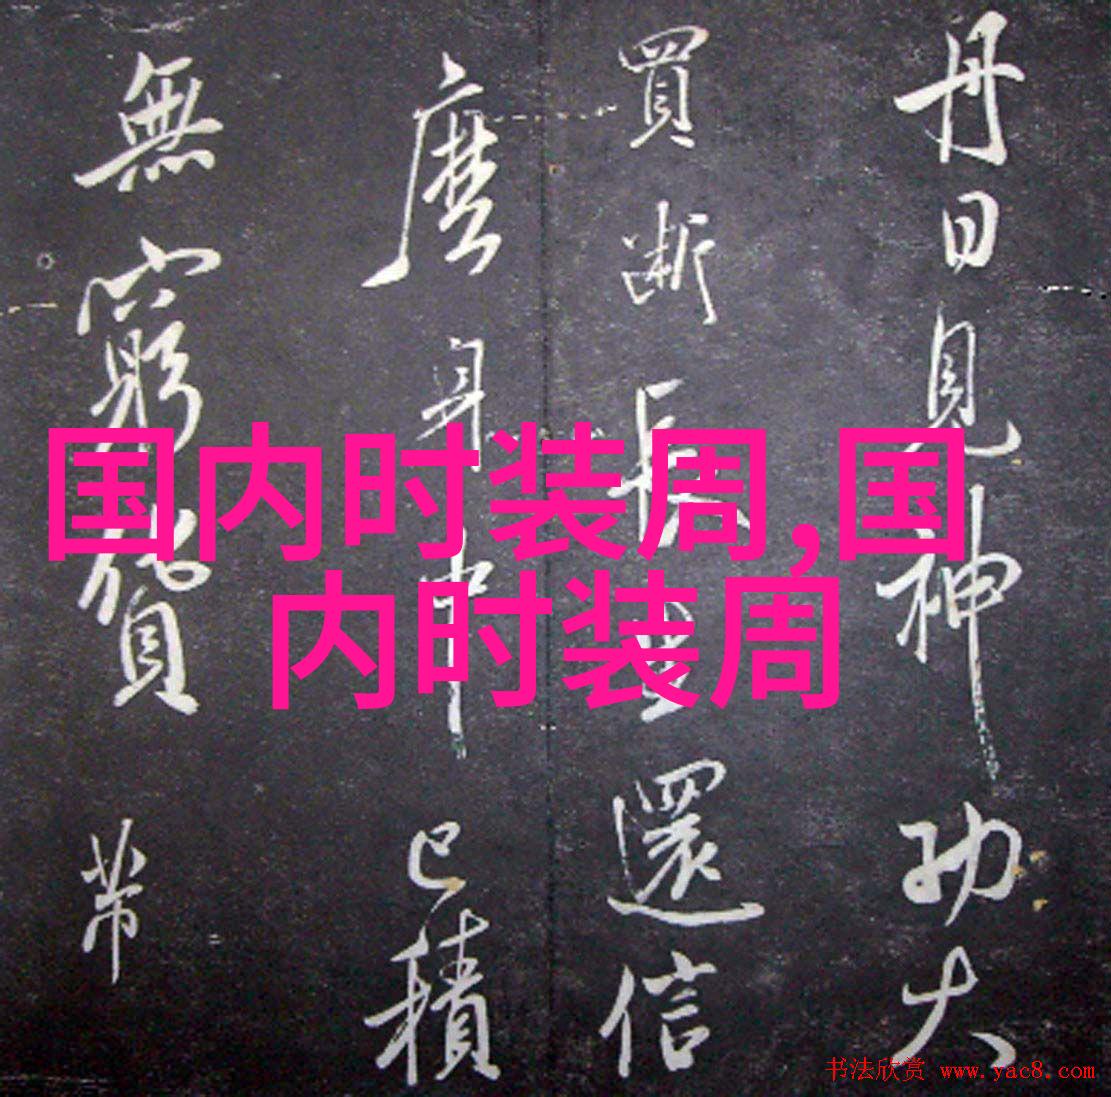 丹日見神功大
買斷長生還信
麼身中已積
無窮貨 帶
国内时装周,国
内时装周
书法欣赏 www.yac8.com